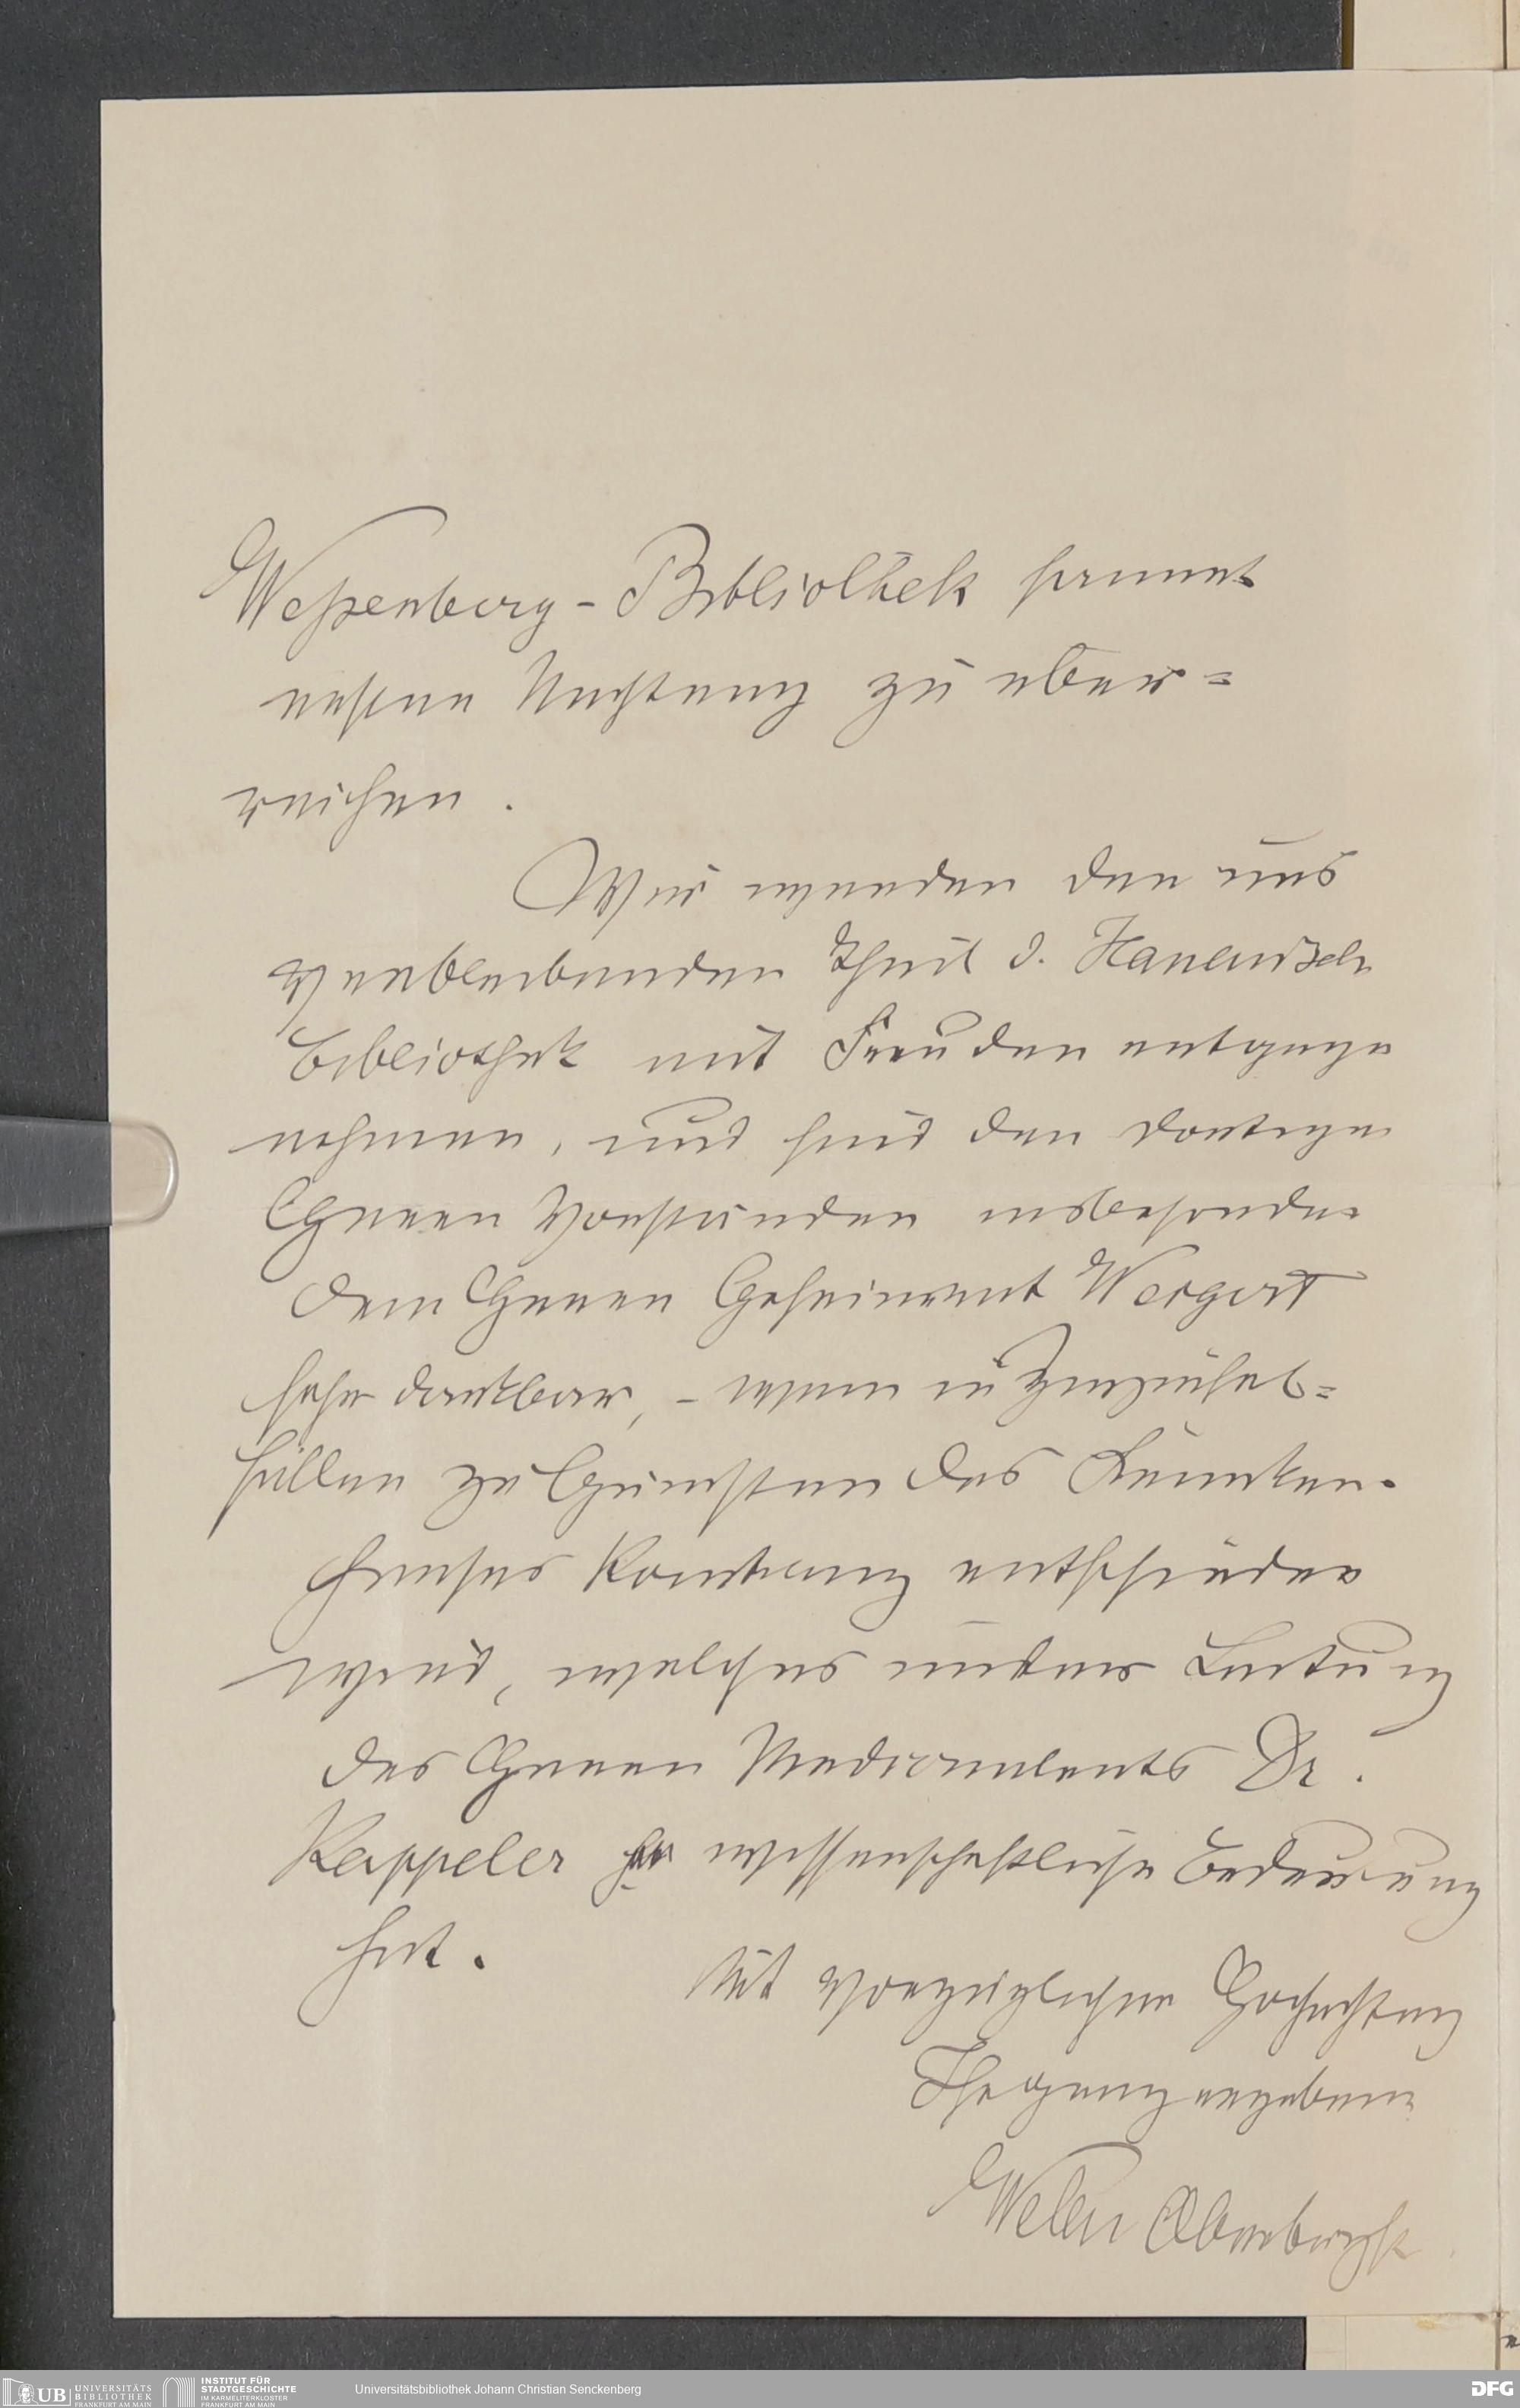 Weßenberg-Bibliothek sammt
dessen Nachtrag zu über=
reichen.
Wir werden den uns
verbleibenden Theil d. Hanauisch
Bibliothek mit Freuden entgegen
nehmen, und sind den dortigen
Herren Vorständen insbesondere
dem Herrn Geheimrat Weigert
sehr dankbar, - wenn in Zweifels=
fällen zu Gunsten des Kranken-
hauses Konstanz entschieden
wird, welches unter Leitung
des Herrn Medicinalrats Dr.
Kappeler wissenschaftliche Bedeutung
hat.
Mit vorzüglicher Hochachtung
Ihr ganz ergebener
UB UNIVERSITÄTS
BIBLIOTHEK
FRANKFURT AM MAIN
INSTITUT FÜR
STADTGESCHICHTE
IM KARMELITERKLOSTER
FRANKFURT AM MAIN
Universitätsbibliothek Johann Christian Senckenberg
DFG